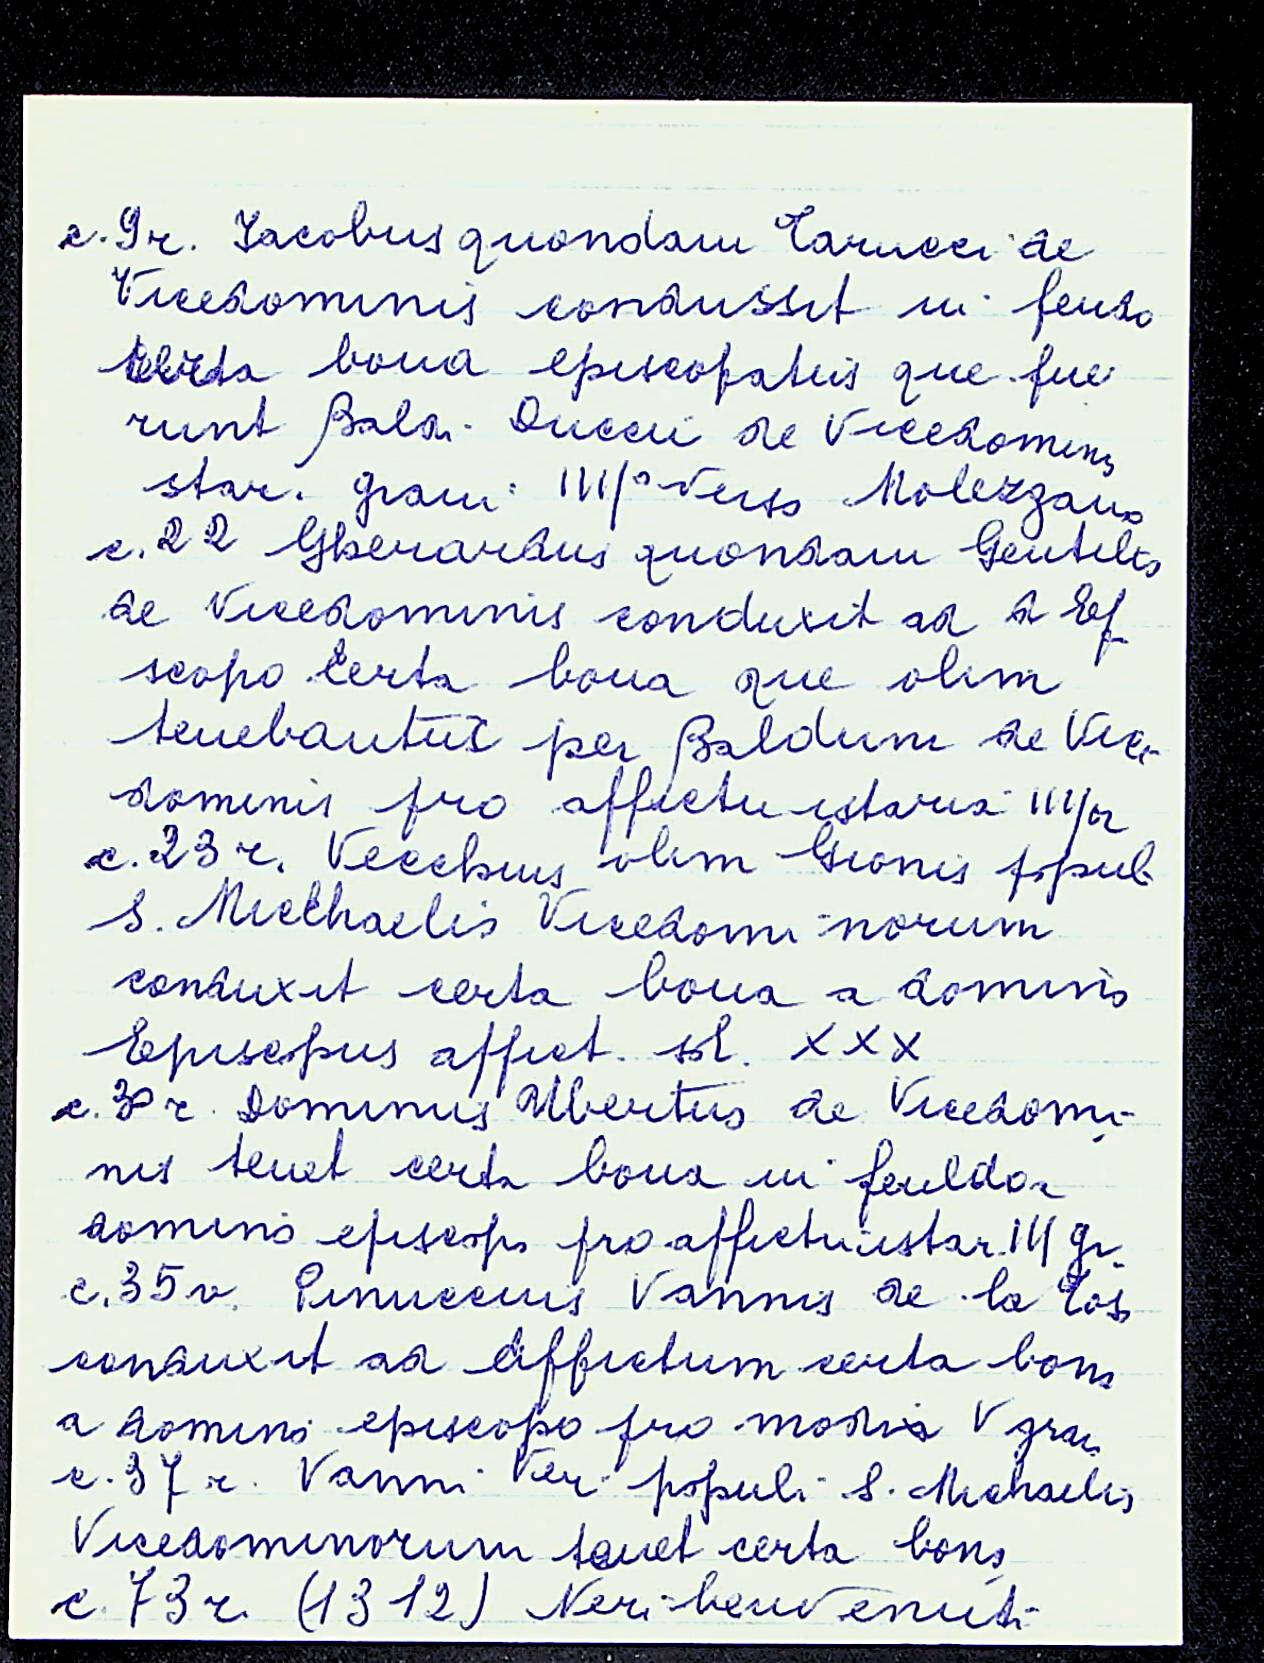 c. 9r. Iacobus quondam Tarucci de
Vicedominis condussit in feudo
certa bona episcopatus que fue
runt Baldi Duccii de Vicedominis
star. grani IIII° verso Molezzano
c. 22 Gherardus quondam Gentilis
de Vicedominis conduxit ad d Ep
scopo certa bona que olim
tenebantur per Baldum de Vice
dominis pro affictu istaria IIII
c. 23 r. Vecchius olim Gionis popul
S. Micchaelis Vicedomi-norum
conduxit certa bona a domino
Episcopus affict. sol. XXX
c. 3 r. Dominus Albertus de Vicedomi-
nis tenet certa bona in feuldo a
domino episcopo pro affictu istar. III gr.
c. 35 v. Pinuccius Vannis de la Tos
conduxit ad affictum certa bona
a domino episcopo pro modia V gran
c. 37 r. Vanni Veri populi S. Michaelis
Vicedominorum tenet certa bona
c. 73 r. (1312) Neri benvenuti